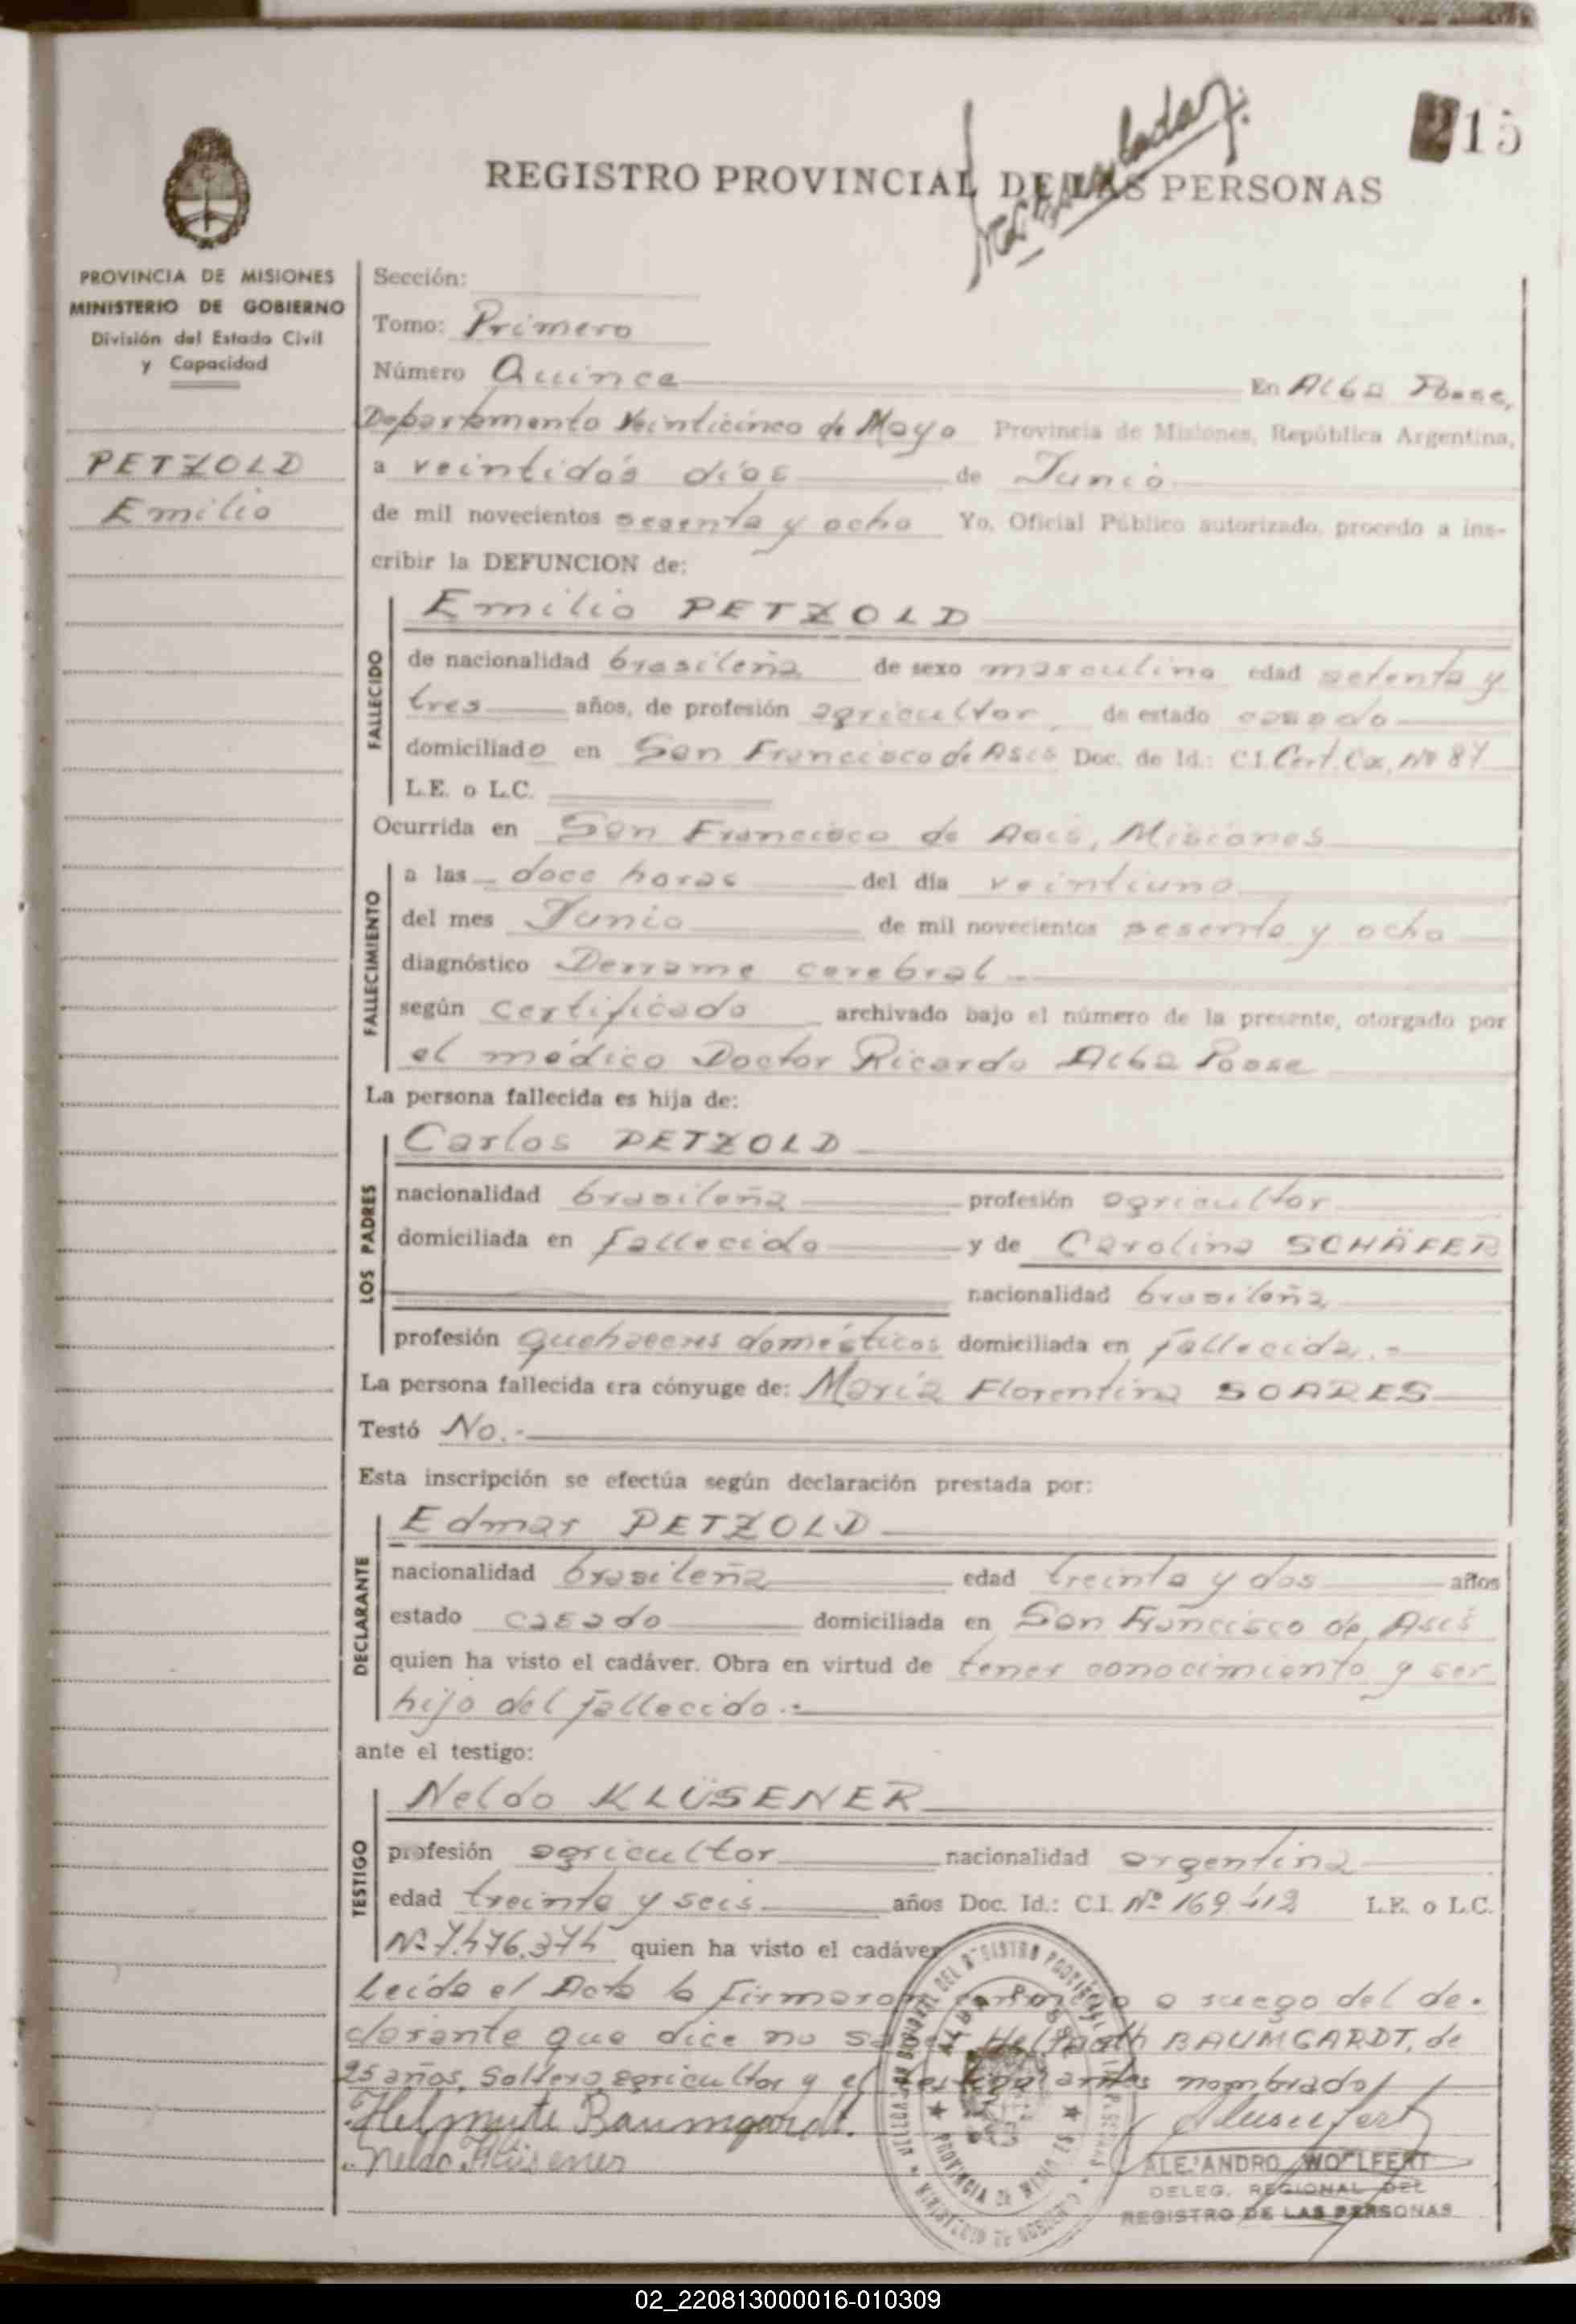 15
REGISTRO PROVINCIAL DE LAS PERSONAS
PROVINCIA DE MISIONES
MINISTERIO DE GOBIERNO
División del Estado Civil
y Capacidad
PETZOLD
Emilio
Sección:
Tomo: Primero
Número Quince En Alba Posse,
Departamento Veinticinco de Mayo Provincia de Misiones, República Argentina,
a veintidós días de Junio
de mil novecientos sesenta y ocho Yo, Oficial Público autorizado, procedo a ins-
cribir la DEFUNCION de:
FALLECIDO
Emilio PETZOLD
de nacionalidad brasileña de sexo masculino edad setenta y
tres años, de profesión agricultor de estado casado
domiciliado en San Francisco de Asis Doc. de Id.: C.I. Cert. Nº 87
L.E. o L.C.
Ocurrida en San Francisco de Asis, Misiones
FALLECIMIENTO
a las doce horas del día veintiuno
del mes Junio de mil novecientos sesenta y ocho
diagnóstico Derrame cerebral
según certificado archivado bajo el número de la presente, otorgado por
el médico Doctor Ricardo Alba Posse
La persona fallecida es hija de:
LOS PADRES
Carlos PETZOLD
nacionalidad brasileña profesión agricultor
domiciliada en fallecido y de Carolina SCHÄFER
nacionalidad brasileña
profesión quehaceres domésticos domiciliada en fallecida.-
La persona fallecida era cónyuge de: María Florentina SOARES
Testó No.-
Esta inscripción se efectúa según declaración prestada por:
DECLARANTE
Edmar PETZOLD
nacionalidad brasileña edad treinta y dos años
estado casado domiciliada en San Francisco de Asis
quien ha visto el cadáver. Obra en virtud de tener conocimiento y ser
hijo del fallecido.-
ante el testigo:
TESTIGO
Neldo KLÜSENER
profesión agricultor nacionalidad argentina
edad treinta y seis años Doc. Id.: C.I. Nº 169.412 L.E. o L.C.
Nº 7.476.374 quien ha visto el cadáver
Leída el Acta la firmaron conmigo a ruego del de-
clarante que dice no saber BAUMGARDT, de
25 años, soltero, agricultor y el testigo antes nombrado
Helmute Baumgardt.
Neldo Klüsener
ALEJANDRO WOLFERT
DELEG. REGIONAL DEL
REGISTRO DE LAS PERSONAS
PROVINCIA DE MISIONES
MINISTERIO DE GOBIERNO
02_220813000016-010309